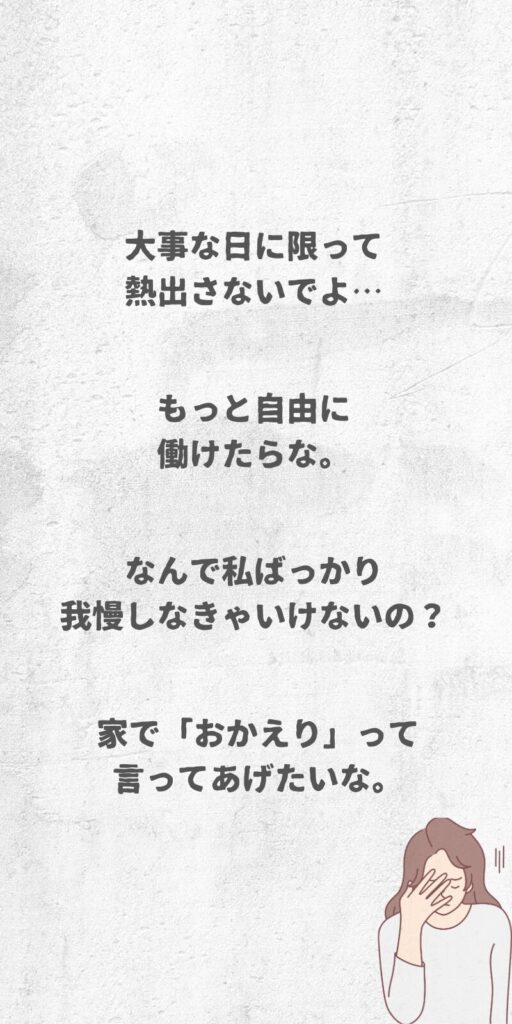 大事な日に限って
熱出さないでよ…
もっと自由に
働けたらな。
なんで私ばっかり
我慢しなきゃいけないの？
家で「おかえり」って
言ってあげたいな。